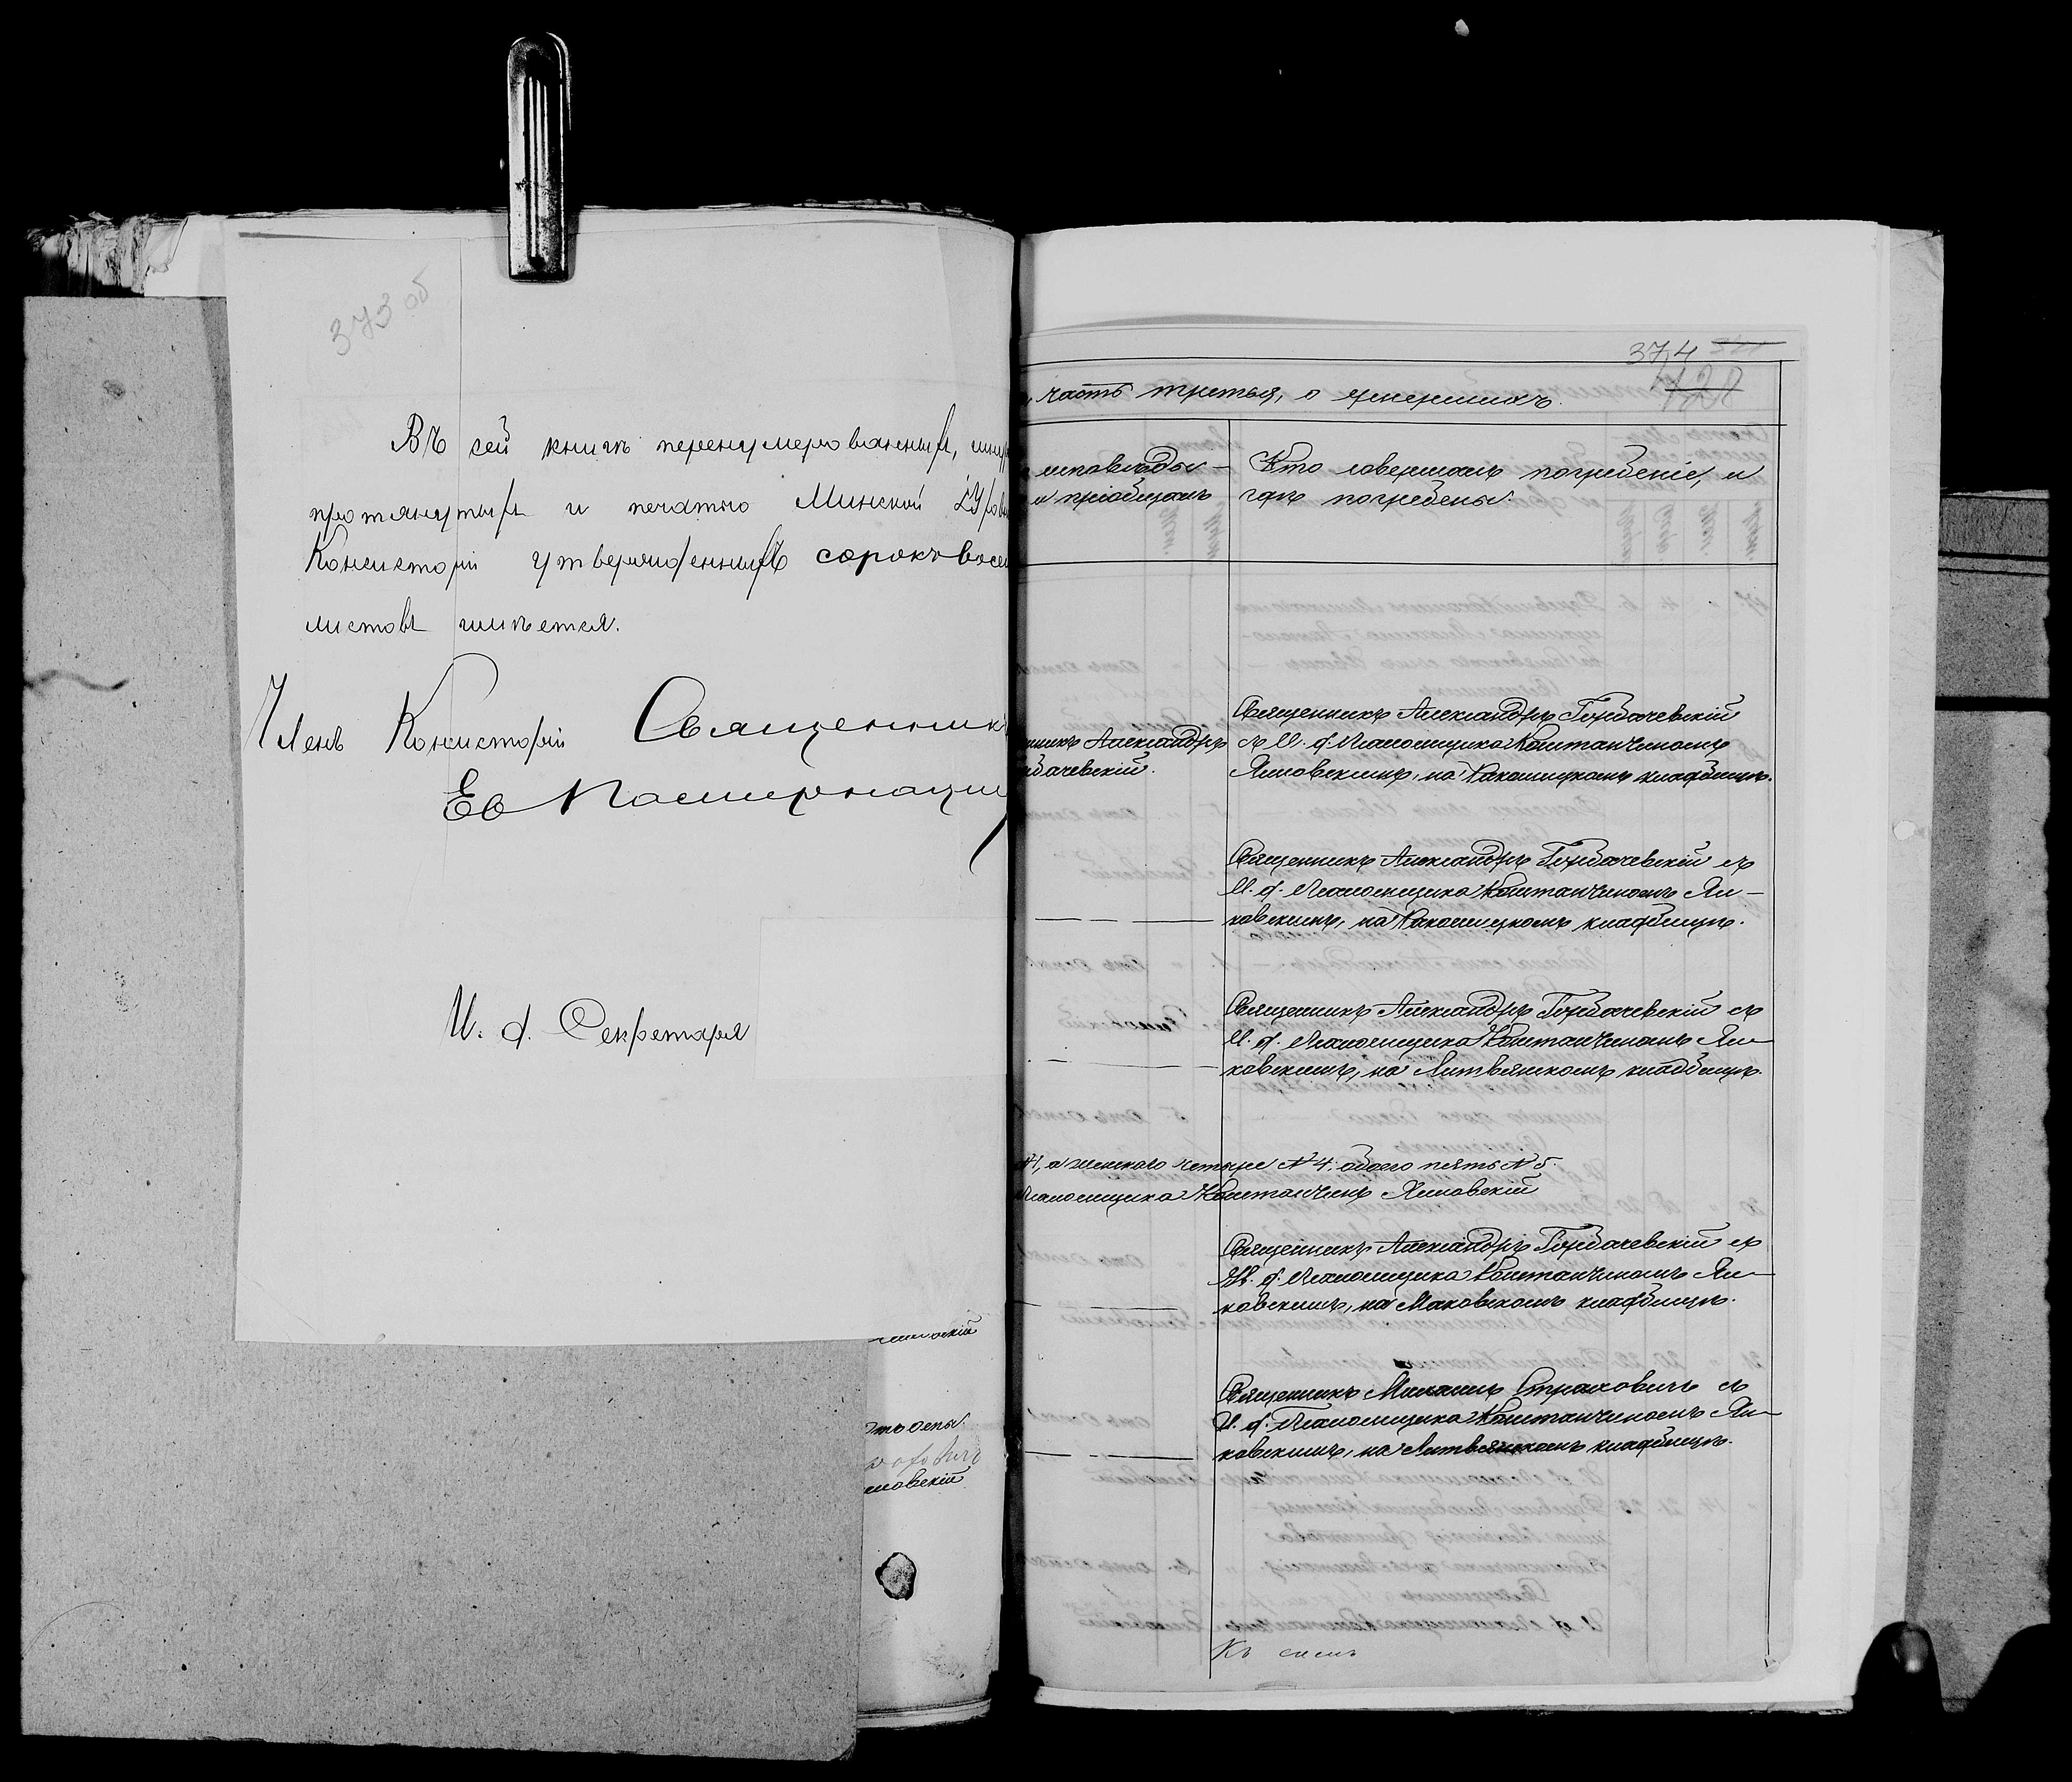 373 об
Въ сей книгѣ перенумерованныхъ, шнур
протянутыхъ и печатью Минской Дхов
Консисторіи утвержденныхъ сорокъ восем
листовъ имѣется.
Членъ Консисторіи Священникъ
И. д. Секретаря
374
часть третья, о умершихъ.
исповѣды-
и пріобщалъ
Кто совершалъ погребеніе, и
гдѣ погребены.
никъ Александръ
бачевскій.
Священникъ Александръ Горбачевскій
съ И. д. Псаломщика Константиномъ
Янковскимъ, на Ракошицкомъ кладбищѣ.
Священникъ Александръ Горбачевскій съ
И. д. Псаломщика Константиномъ Ян-
ковскимъ, на Ракошицкомъ кладбищѣ.
Священникъ Александръ Горбачевскій съ
И. д. Псаломщика Константиномъ Ян-
ковскимъ, на Литвянскомъ кладбищѣ.
№1, а женскаго четыре №4. обоего пять №5.
Псаломщика Константинъ Янковскій
Священникъ Александръ Горбачевскій съ
И. д. Псаломщика Константиномъ Ян-
ковскимъ, на Маковскомъ кладбищѣ.
Священникъ Михаилъ Страховичъ съ
И. д. Псаломщика Константиномъ Ян-
ковскимъ, на Литвянскомъ кладбищѣ.
новскій